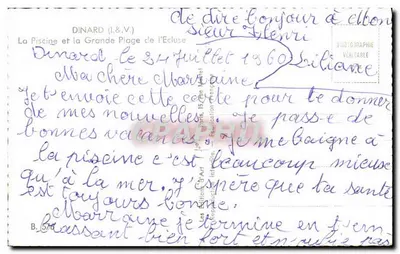 de dire bonjour à Mon
Sieur Henri
DINARD (I.&V.)
La Piscine et la Grande Plage de l'Ecluse
Dinard le 24 Juillet 1960 Liliane
Ma chère Marraine
Je t'envoie cette carte pour te donner
de mes nouvelles. Je passe de
bonnes vacances. Je me baigne à
la piscine c'est beaucoup mieux
qu'à la mer. J'espère que ta santé
est toujours bonne.
Marraine je termine en t'em
brassant bien fort et n'oublie pas